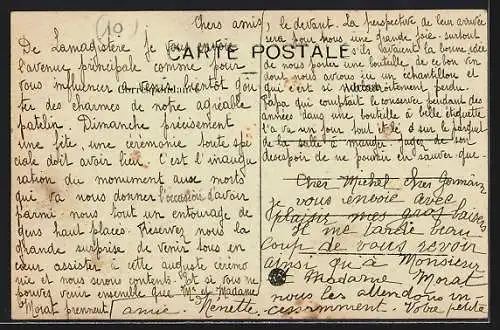 10
Chers amis,
De Lamagistère je vous envoie
CARTE POSTALE
l'avenue principale comme pour
vous influencer à venir bientôt goû
Correspondance
ter des charmes de notre agréable
patelin. Dimanche précisément
une fête, une cérémonie toute spé
ciale doit avoir lieu. C'est l'inaugu
ration du monument aux morts
qui va nous donner l'occasion d'avoir
parmi nous tout un entourage de
gens haut placés. Réservez nous la
grande surprise de venir tous en
cœur assister à cette auguste cérémo
nie et nous serons contents. Et si vous ne
pouvez venir ensemble que Mr et Madame
Morat prennent
amie Nénette
le devant. La perspective de leur arrivée
sera pour nous, une grande joie surtout
s'ils avaient la bonne idée
de nous porter une bouteille de ce bon vin
dont nous avons eu un échantillon et
qui s'est si perdu.
Papa qui comptait le conserver pendant des
années dans une bouteille à belle étiquette
l'a vu un jour tout étalé sur le parquet
de la salle à manger. Jugez de son
désespoir de ne pouvoir en sauver que
Cher Michel cher Germain
je vous envoie avec
plaisir mes gros baisers
et me tarde beau
coup de vous revoir
ainsi qu'à Monsieur
Madame Morat
nous les attendons in
cessamment. Votre petite